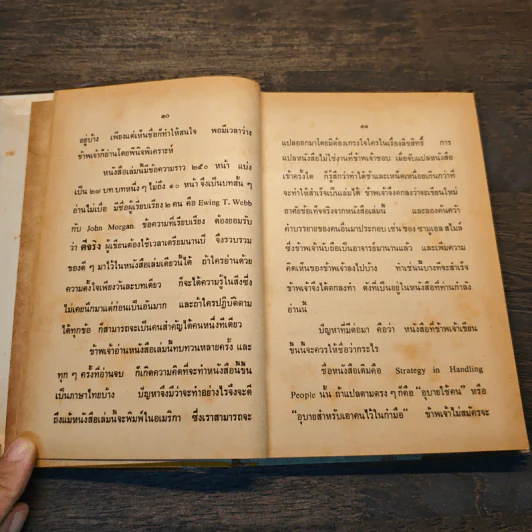 ๑๐
อยู่บ้าง เพียงแต่เห็นชื่อก็ทำให้สนใจ พอมีเวลาว่าง
ข้าพเจ้าก็อ่านโดยพินิจพิเคราะห์
หนังสือเล่มนี้มีข้อความราว ๒๕๐ หน้า แบ่ง
เป็น ๒๗ บท บทหนึ่ง ๆ ไม่ถึง ๑๐ หน้า จึงเป็นบทสั้น ๆ
อ่านไม่เบื่อ มีชื่อผู้เรียบเรียง ๒ คน คือ Ewing T. Webb
กับ John Morgan ข้อความที่เรียบเรียง ต้องยอมรับ
ว่า ดีจริง ผู้เขียนต้องใช้เวลาเตรียมนานปี จึงรวบรวม
ของดี ๆ มาไว้ในหนังสือเล่มเดียวนี้ได้ ถ้าใครอ่านด้วย
ความตั้งใจเพียงวันละบทเดียว ก็จะได้ความรู้ในสิ่งซึ่ง
ไม่เคยนึกมาแต่ก่อนเป็นอันมาก และถ้าใครปฏิบัติตาม
ได้ทุกข้อ ก็สามารถจะเป็นคนสำคัญได้คนหนึ่งทีเดียว
ข้าพเจ้าอ่านหนังสือเล่มนี้ทบทวนหลายครั้ง และ
ทุก ๆ ครั้งที่อ่านจบ ก็เกิดความคิดที่จะทำหนังสือนี้ขึ้น
เป็นภาษาไทยบ้าง ปัญหาจึงมีว่าจะทำอย่างไรจึงจะดี
ถึงแม้หนังสือเล่มนี้จะพิมพ์ในอเมริกา ซึ่งเราสามารถจะ
๑๑
แปลออกมาโดยมิต้องเกรงใจใครในเรื่องลิขสิทธิ์ การ
แปลหนังสือไม่ใช่งานที่ข้าพเจ้าชอบ เมื่อจับแปลหนังสือ
เข้าครั้งใด ก็รู้สึกว่าทำได้ช้าและเหน็ดเหนื่อยเกินกว่าที่
จะทำให้สำเร็จเป็นเล่มได้ ข้าพเจ้าจึงตกลงว่าจะเขียนใหม่
อาศัยข้อเท็จจริงจากหนังสือเล่มนี้ และลองค้นคว้า
คำบรรยายของคนอื่นมาประกอบ เช่น ของ ซามูเอล สไมล์
ซึ่งข้าพเจ้านับถือเป็นอาจารย์มานานแล้ว และเพิ่มความ
คิดเห็นของข้าพเจ้าลงไปบ้าง ทำเช่นนี้บางทีจะสำเร็จ
ข้าพเจ้าจึงได้ตกลงทำ ดังที่เป็นอยู่ในหนังสือที่ท่านกำลัง
อ่านนี้
ปัญหาที่มีต่อมา คือว่า หนังสือที่ข้าพเจ้าเขียน
ขึ้นนี้จะควรให้ชื่อว่ากระไร
ชื่อหนังสือเดิมคือ Strategy in Handling
People นั้น ถ้าแปลตามตรง ๆ ก็คือ “อุบายใช้คน” หรือ
“อุบายสำหรับเอาคนไว้ในกำมือ” ข้าพเจ้าไม่สมัครจะ